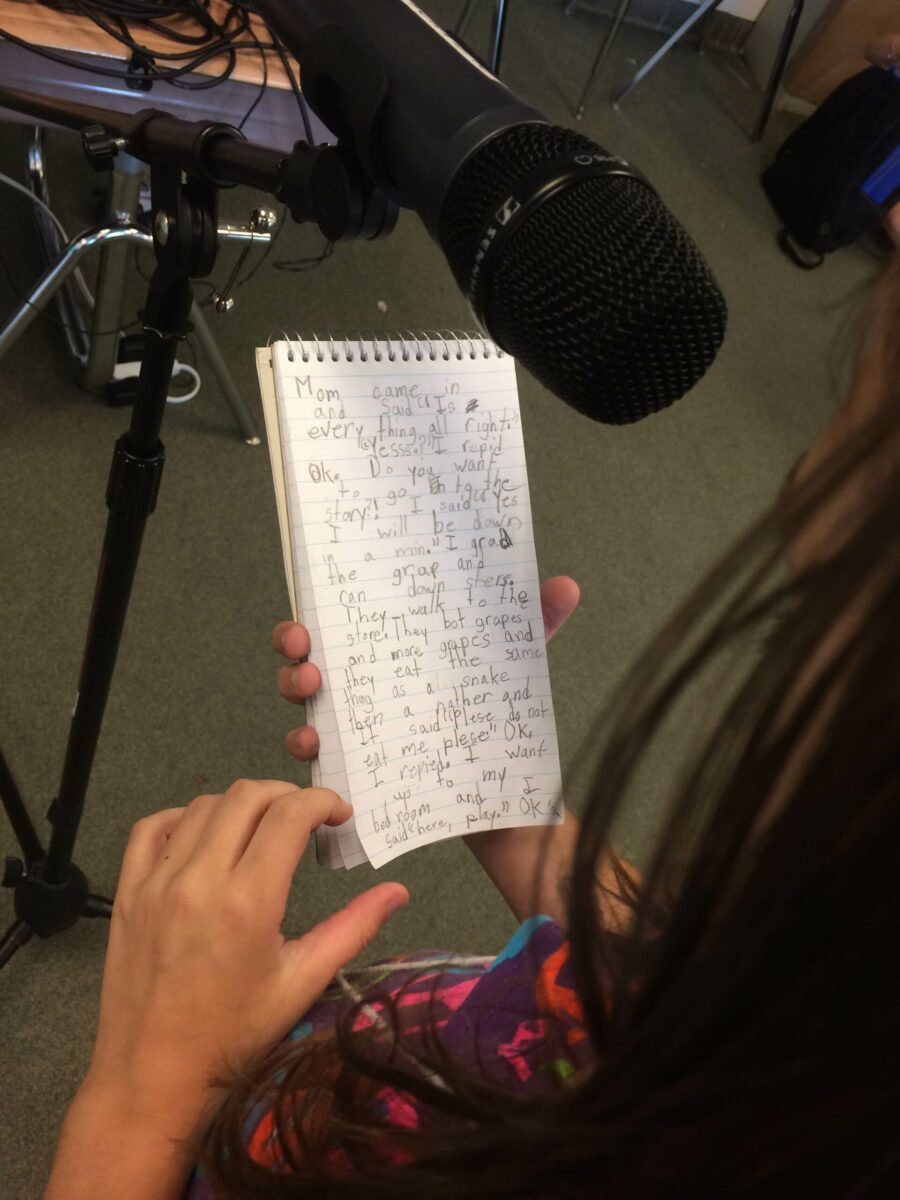 SENN
Mom came in
and said "Is
every thing all right."
"yesss.?" I repid
Ok. Do you want
to go to the
story?! I said "Yes
I will be down
in a min." I grad
the grap and
can down sters.
They walk to the
store. They bot grapes
and more grapes and
they eat the same
thing as a snake
then a nather and
It said "plese do not
eat me plese." OK.
I repied. I want
up to my
bod room and I
said "here, play." OK